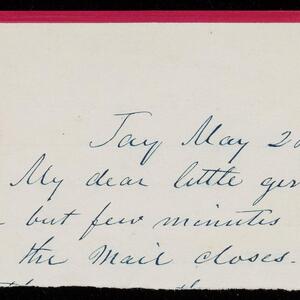 Jay May 20
My dear little
but few minutes
the Mail closes.